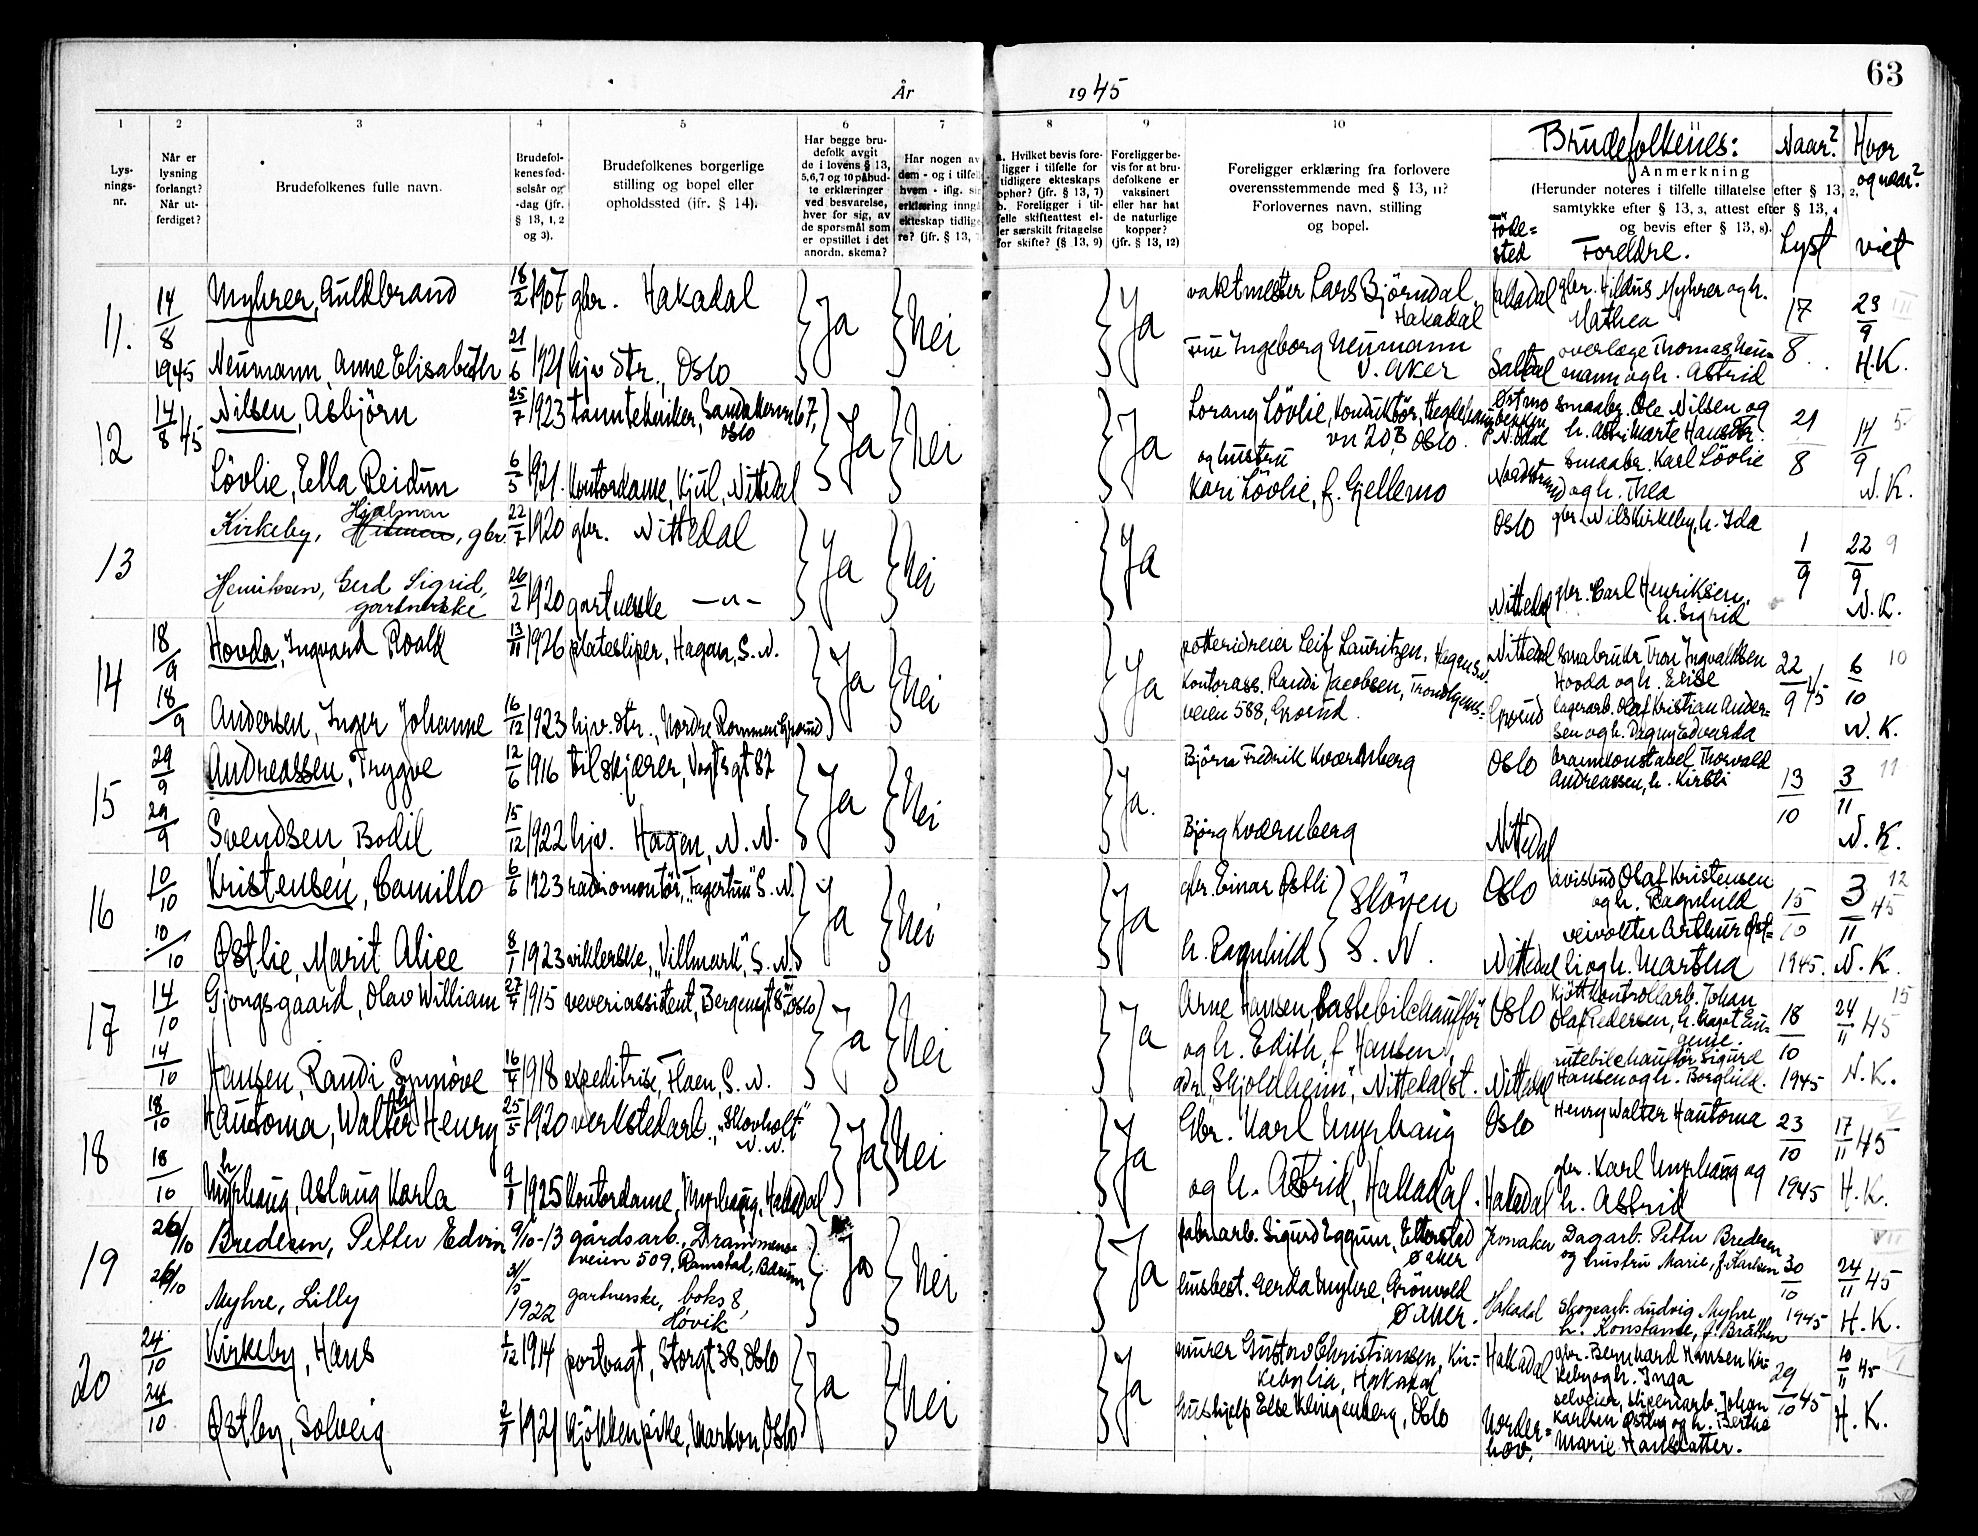 63
År
1945
1
2
3
4
5
6
7
8
9
10
11
Lys-
nings-
nr.
Når er
lysning
forlangt?
Når ut-
ferdiget?
Brudefolkenes fulle navn.
Brudefol-
kenes fød-
selsår og
-dag (jfr.
§ 13, 1, 2
og 3).
Brudefolkenes borgerlige
stilling og bopel eller
opholdssted (jfr. § 14).
Har begge bru-
defolk avgit
de i lovens § 13,
5,6,7 og 10 påbud-
te erklæringer
ved besvarelse,
hver for sig, av
de spørsmål som
er opstillet i det
anordn. skema?
Har nogen av
dem - og i tilfelle
hvem - iflg. sin
erklæring inngå
ekteskap tidlige
re? (jfr. § 13,
a. Hvilket bevis fore-
ligger i tilfelle for
tidligere ekteskaps
ophør? (jfr. § 13, 7)
b. Foreligger i til-
felle skifteattest el-
ler særskilt fritagelse
for skifte? (§ 13, 9)
Foreligger be-
vis for at bru-
defolkene er
vaksinert
eller har hat
de naturlige
kopper?
(jfr. § 13, 12)
Foreligger erklæring fra forlovere
overensstemmende med § 13, 11?
Forlovernes navn, stilling
og bopel.
Brudefolkenes:
Anmerkning
(Herunder noteres i tilfelle tillatelse efter § 13, 2,
samtykke efter § 13, 3, attest efter § 13, 4
og bevis efter § 13, 8).
Føde-
sted
Foreldre.
Naar?
Lyst
Hvor
og naar?
viet
11.
14/8
1945
Myhrer, Guldbrand
18/2 1907
gbr. Hakadal
Ja
Nei
Ja
vaktmester Lars Bjørndal,
Hakadal
Hakadal
gbr. Hildus Myhrer og h.
Mathea
17/8.
23/9
III
Neumann, Anne Elisabeth
21/6 1921
hjv. dtr., Oslo
Frue Ingeborg Neumann
v. Aker
Saltdal
overlæge Thomas Neu-
mann og h. Astrid
H.K.
12
14/8 45
Nilsen, Asbjörn
25/7 1923
tanntekniker, Sandakervn 67,
Oslo
Ja
Nei
Ja
Lorang Lövlie, Konduktör, Hegdehaugs-
vn 20B, Oslo.
og hustru
Kari Lövlie, f. Gjellemo
smaabr. Ole Nilsen og
21/8
14/9
5
Lövlie, Ella Reidun
6/5 1921.
Kontordame, Kjul, Nittedal
Nordstrand
smaabr. Karl Lövlie
og h. Thea
N.K.
13
Hjalmar
Kirkeby, , gbr.
22/7 1920
gbr. Nittedal
Ja
Nei
Ja
Oslo
gbr. Nils Kirkeby, h. Ida
1/9
22/9
9
Henriksen, Gerd Sigrid,
gartnerske
26/2 1920
gartnerske —"—
Nittedal
gbr. Carl Henriksen,
h. Sigrid
N.K.
14
18/9
Hovda, Ingvard Roald
13/11 1926
platesliper, Hagan, S. N.
Ja
Nei
Ja
potteridreier Leif Lauritzen, Hagen S.N.
Nittedal
smabruker Tron Ingvaldsen
Hovda og h. Elise
22/9 45
6/10
10
18/9
Andersen, Inger Johanne
16/12 1923
hjv. dtr., Nordre Rommen Grorud
Kontorass. Randi Jacobsen, Trondhjems-
veien 588, Grorud.
Grorud
lagerarb. Olaf Kristian Ander-
sen og h. Dagny Edvarda
N.K.
15
29/9
Andreassen, Trygve
12/6 1916
tilskjærer, Vogts gt 82
Ja
Nei
Ja.
Björn Fredrik Kværnberg
Oslo
brannkonstabel Thorvald
Andreassen, h. Kirsti
13/10
3/11
11
29/9
Svendsen, Bodil
15/12 1922
hjv. Hagen, N. N.
Björg Kværnberg
Nittedal
N.K.
16
10/10
Kristensen, Camillo
6/6 1923
radiomontör, "Fagertun" S. N.
Ja
Nei
Ja
gbr. Einar Østli
Oslo
avisbud Olaf Kristensen
og h. Ragnhild
15/10
1945.
3/11 45
12
10/10
Østlie, Marit Alice
8/1 1923
viklerske, "Villmark", S. N.
h. Ragnhild
Skøyen
S. N.
Nittedal
veivokter Arthur Øst-
li og h. Martha
N.K.
17
14/10
Gjongsgaard, Olav William
27/4 1915
veveriassistent, Bergensgt 8 III, Oslo
Ja
Nei
Ja
Arne Hansen, lastebilchauffør
og h. Edith, f. Hansen,
adr. "Skjoldheim", Nittedal st.
Oslo
Kjöttkontrollarb. Johan
Olaf Pedersen, h. Eu-
genie.
18/10
1945
24/11 45
15
14/10
Hansen, Randi Synnöve
16/4 1918
expeditrise, Flaen, S. N.
Nittedal
rutebilchauffør Sigurd
Hansen og h. Borghild.
N.K.
18
18/10
Hautoma, Walther Henry
25/5 1920
verkstedarb., "Skovholt"
N. N.
Ja
Nei
Ja
Gbr. Karl Myrhaug
og h. Astrid, Hakadal.
Oslo
Henry Walter Hautoma
23/10
1945
17/11 45
V
18/10
Myhrhaug, Aslaug Karla
9/1 1925
Kontordame, Myrhaug, Hakadal
Hakadal
gbr. Karl Myrhaug og
h. Astrid
H.K.
19
26/10
Bredesen, Petter Edvin
9/10-13
gårdsarb., Drammens-
veien 509, Ramstad, Bærum
Ja
Nei
Ja
fabrarb. Sigurd Eggum, Etterstad
Ø. Aker
Jevnaker
Dagarb. Petter Bredesen
og hustru Marie, f. Karlsen
30/10
1945
24/11 45
VII
26/10
Myhre, Lilly
31/5
1922
gartnerske, boks 8,
Høvik
husbest. Gerda Myhre, Grönvold
Ø. Aker.
Hakadal
Skogsarb. Ludvig Myhre
h. Konstanse, f. Bråthen
H.K.
20
24/10
Kirkeby, Hans
1/12 1914
portvagt, Storgt 38, Oslo
Ja
Nei
Ja
murer Gustav Christiansen, Kir-
kebylia, Hakadal
Hakadal
gbr. Bernhard Hansen Kir-
keby og h. Inga
29/10 45
10/11 45
VI
24/10
Østby, Solveig
2/7 1921
Kjökkenpike, Markvn, Oslo
hushjelp Else Klingenberg, Oslo
Norder-
hov.
selveier, sliperiarb. Johan
Karlsen Østby og h. Berthe
Marie Hansdatter.
H.K.